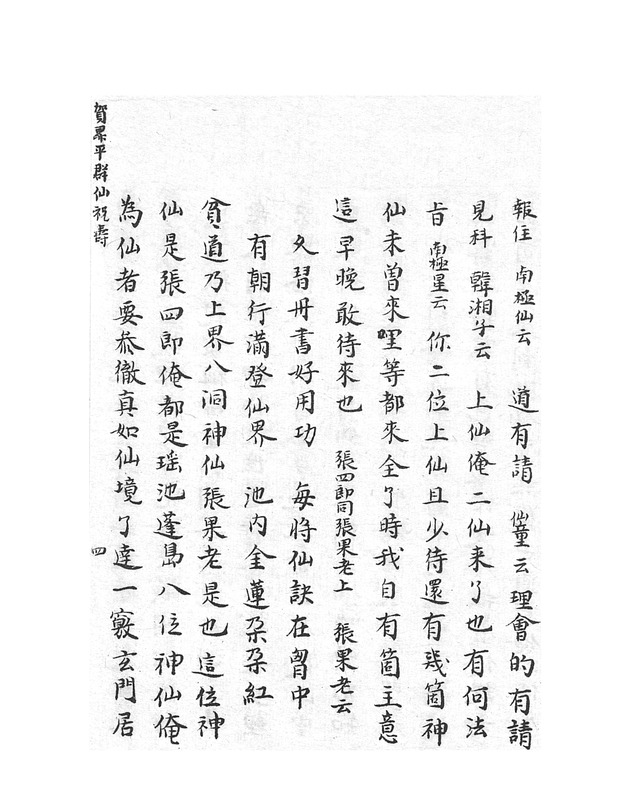 報住 南極仙云 道有請 僊童云 理會的有請
見科 韓湘子云 上仙俺二仙来了也有何法
旨 南極星云 你二位上仙且少待還有幾箇神
仙未曾來哩等都來全了時我自有箇主意
這早晚敢待來也 張四郎同張果老上 張果老云
久習丹書好用功 每將仙訣在胷中
有朝行滿登仙界 池內金蓮朶朶紅
貧道乃上界八洞神仙張果老是也這位神
仙是張四郎俺都是瑶池蓬島八位神仙俺
為仙者要叅徹真如仙境了達一竅玄門居
賀昇平群仙祝壽
四